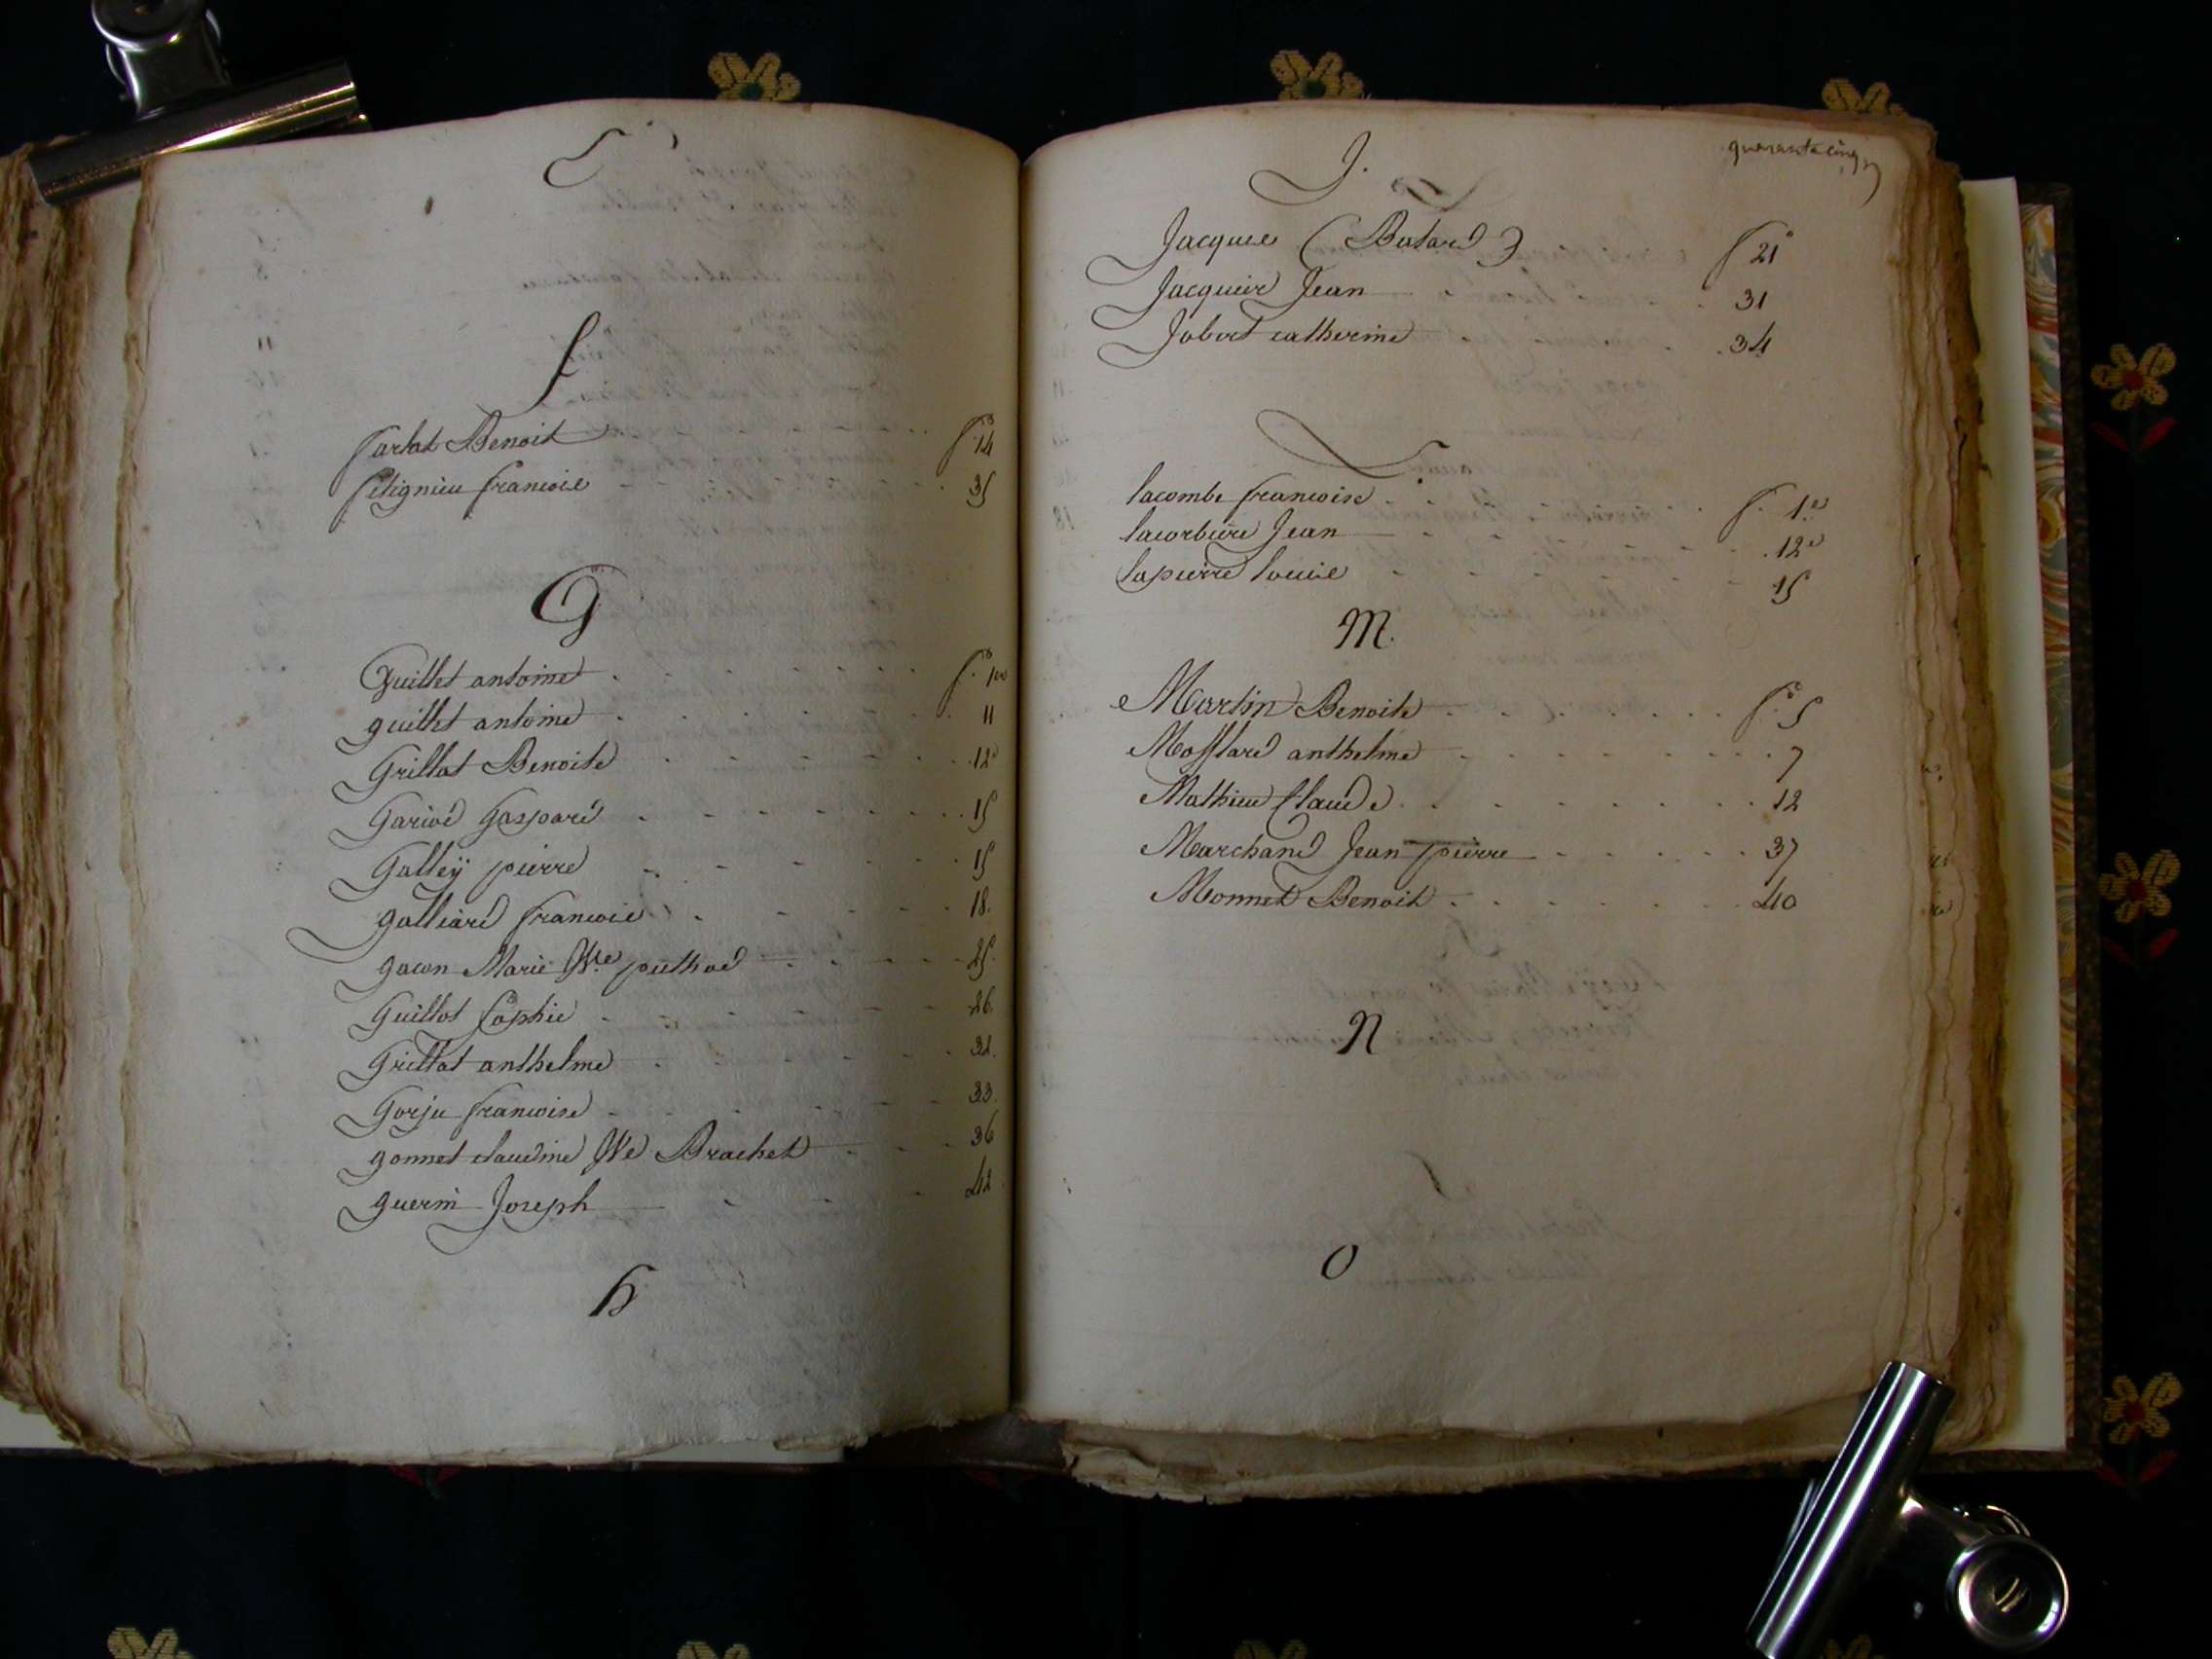 E
f
farlat Benoit f.º 14
fetignieu francois 35
G
Guillet antoine f.º 1er
guillet antoine 11
Grillat Benoite 12
Garivé Gaspard 15
Galleÿ pierre 15
galliard francois 18.
gacon Marie Ve puthod 25.
Guillot Sophie 26.
Grillat anthelme 32.
Gorju francoise 33.
gonnet claudine Ve Brachet 36
guerin Joseph 42
h
quarante cinq
J.
Jacques (Batard) f.º 21
Jacquier Jean 31
Jobert catherine 34
L
lacombe francoise f. 1er
lacorbiere Jean 12
lapierre louise 15
M.
Martin Benoite f.º 5
Mosslard anthelme 7
Mathieu Claude 12
Marchand Jean pierre 37
Monnet Benoit 40
N
O